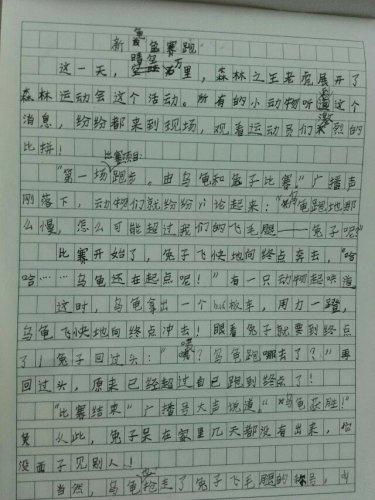 新龟兔赛跑
这一天，晴空万里，森林之王老虎展开了
森林运动会这个活动。所有的小动物听到这个
消息，纷纷都来到现场，观看运动员们激烈的
比拼！
比赛项目：
"第一场跑步。由乌龟和兔子比赛。"广播声
刚落下，动物们就纷纷议论起来："乌龟跑地那
么慢，怎么可能超过我们的飞毛腿——兔子呢？"
比赛开始了，兔子飞快地向终点奔去，"哈
哈……乌龟还在起点呢！"有一只动物起哄道
这时，乌龟拿出一个板车，用力一蹬，
乌龟飞快地向终点冲去！眼看兔子就要到终点
了！兔子回过头："咦？乌龟跑哪去了？"再
回过头，原来已经超过自己跑到终点了！
"比赛结束"广播号大声说道，"乌龟获胜！"
从此，兔子呆在家里几天都没有出来，
没面子见别人！
当然，乌龟抢走了兔子飞毛腿的称号，